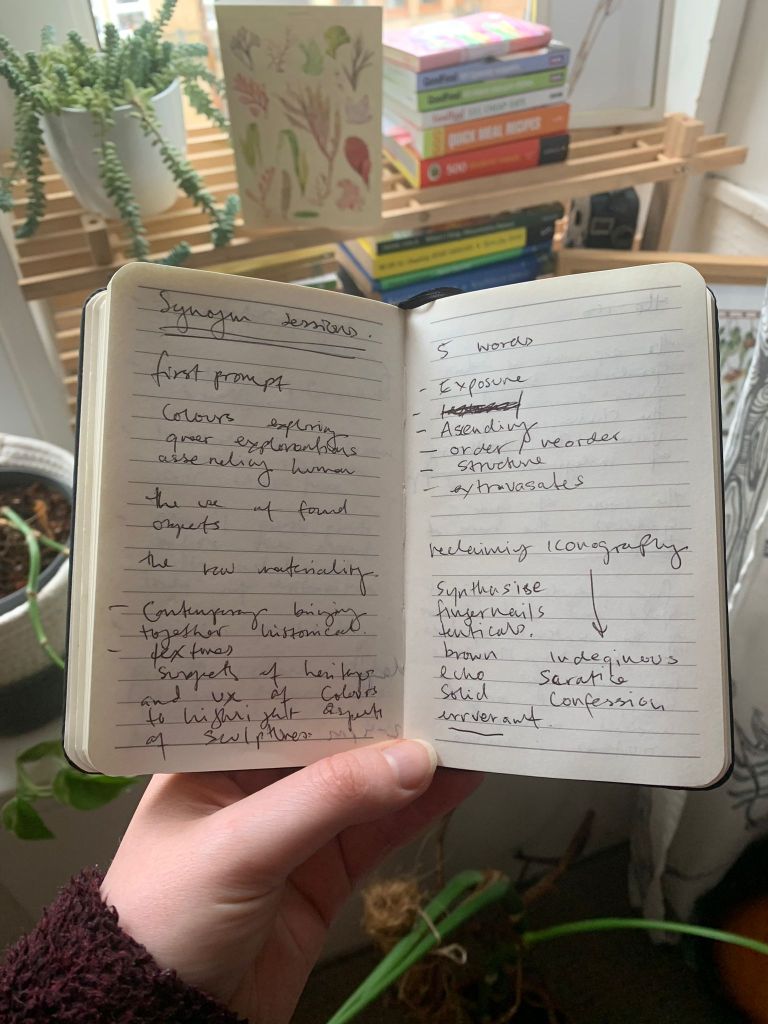 Synogm sessions.
first prompt
Colours exploring
queer explorations
assembling human
the use of found
objects
the raw materiality.
- Contemporary bringing
together historical.
- textures
snippets of heritage
and use of colours
to highlight aspects
of sculptures.
5 words
- Exposure
-
- Asending
- order / reorder
- structure
- extravasates
reclaiming iconography
Synthasise
fingernails
tenticals.
brown indeginous
echo
Solid Confession
irriverant.
QUICK MEAL RECIPES
500